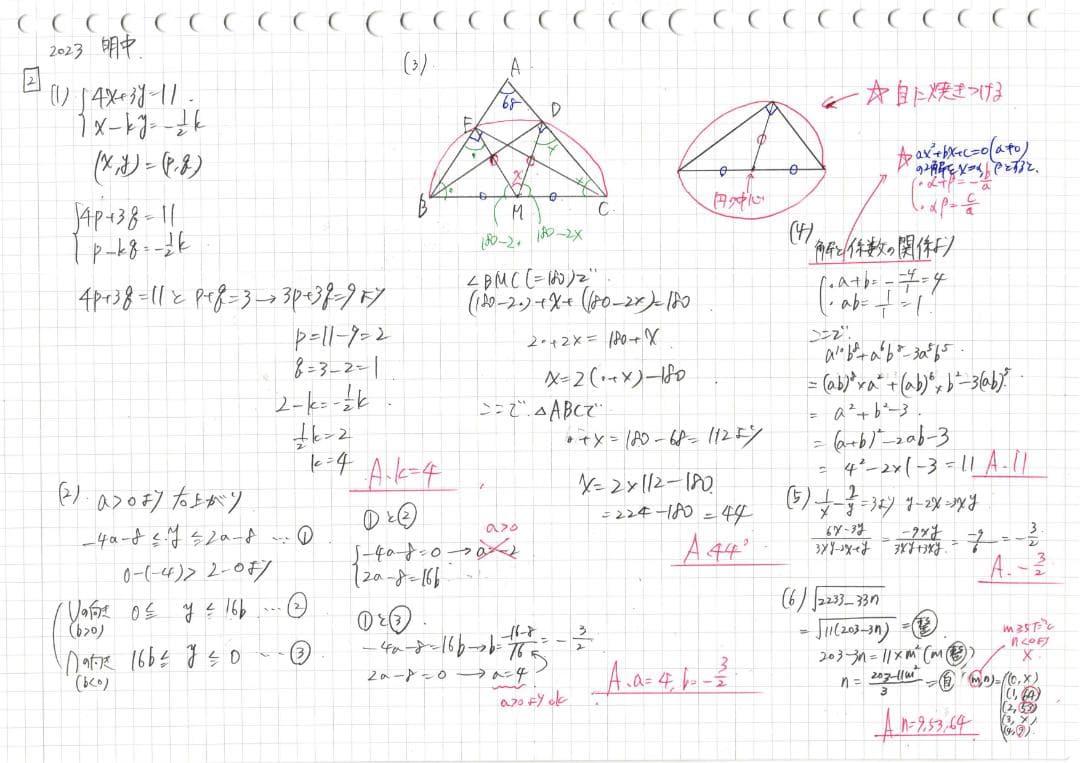 2023 明中.
2
(1) { 4x+3y=11.
x-ky=-1/2k
(x,y)=(p,q)
{ 4p+3q=11
p-kq=-1/2k
4p+3q=11とp+q=3→3p+3q=9より
p=11-9=2
q=3-2=1
2-k=-1/2k
1/2k=2
k=4
A.k=4
(2). a>0より右上がり
-4a-8≦y≦2a-8 …①
0-(-4)>2-0より
Uの向き 0≦y≦16b …②
(b>0)
∩の向き 16b≦y≦0 …③
(b<0)
①と②
a>0
{ -4a-8=0→a=-2
2a-8=16b
①と③
-4a-8=16b→b=-16-8/16=-3/2
2a-8=0→a=4
a>0よりok
A.a=4,b=-3/2
(3)
A
68
F
D
x
B
M
C
180-2・
180-2×
∠BMC(=180)で
(180-2・)+x+(180-2×)=180
2・+2×=180+x
x=2(・+×)-180
ここで△ABCで
・+×=180-68=112より
x=2×112-180
=224-180=44
A.44°
☆目に焼きつける
円の中心
☆ax²+bx+c=0(a≠0)
の2解をx=α,βとすると、
{ ・α+β=-b/a
・αβ=c/a
(4)
解と係数の関係より
{ ・a+b=-(-4)/1=4
・ab=1/1=1
ここで
a¹⁰b⁸+a⁶b⁸-3a⁵b⁵
=(ab)⁸×a²+(ab)⁶×b²-3(ab)⁵
=a²+b²-3
=(a+b)²-2ab-3
=4²-2×1-3=11 A.11
(5) 1/x-2/y=3より y-2x=3xy
6x-3y/3xy-2x+y=-9xy/3xy+3xy=-9/6=-3/2
A.-3/2
(6) √2233-33n
=√11(203-3n)=整
203-3n=11×m²(m整)
n=203-11m²/3=自
m≧5だと
n<0より
×
(m,n)=(0,×)
(1,64)
(2,53)
(3,×)
(4,9)
A n=9,53,64